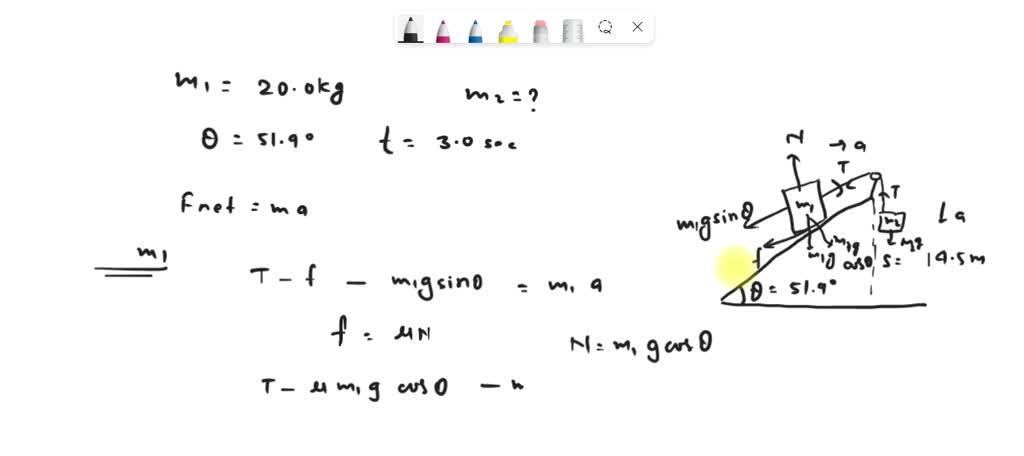 m1 = 20.0kg
m2 = ?
θ = 51.9°
t = 3.0 sec
Fnet = ma
m1
T - f - m1gsinθ = m1 a
f = μN
N = m1 g cosθ
T - μ m1 g cosθ -
N
→ a
T
m1
T
m1gsinθ
m2
↓a
f
m1g
m1g cosθ
m2g
S = 19.5m
θ = 51.9°